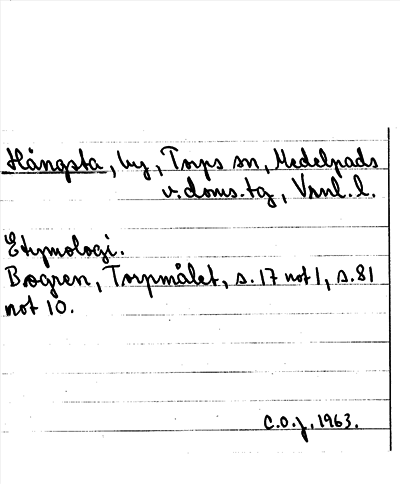 Hångsta, by, Torps sn, Medelpads
v. doms. tg, Vrnl. l.
Etymologi.
Bogren, Torpmålet, s. 17 not 1, s. 81
not 10.
C.O.J., 1963.